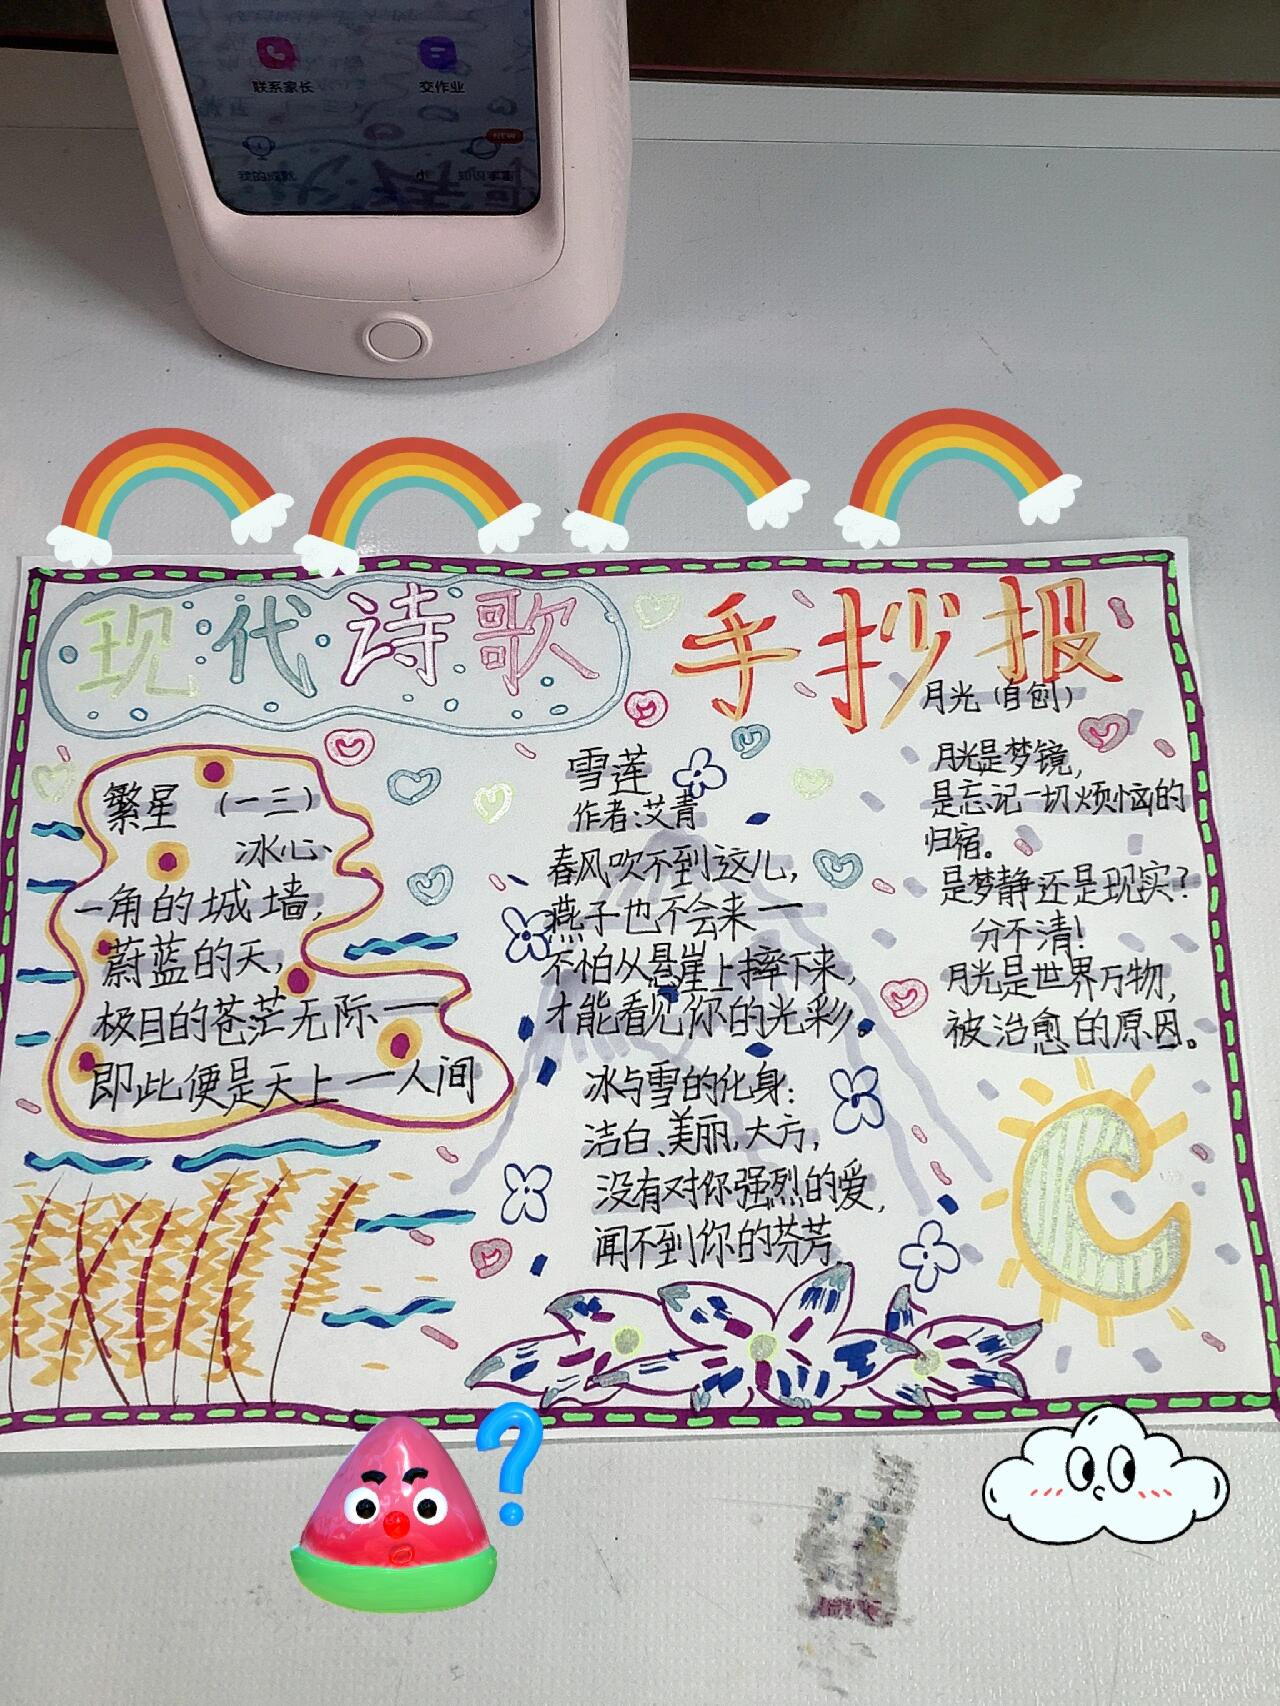 联系家长
交作业
现代诗歌
手抄报
繁星（一三）
冰心
一角的城墙，
蔚蓝的天，
极目的苍茫无际——
即此便是天上——人间
雪莲
作者：艾青
春风吹不到这儿，
燕子也不会来——
不怕从悬崖上摔下来，
才能看见你的光彩。
冰与雪的化身：
洁白、美丽，大方，
没有对你强烈的爱，
闻不到你的芬芳
月光（自创）
月光是梦镜，
是忘记一切烦恼的
归宿。
是梦静还是现实？
分不清！
月光是世界万物，
被治愈的原因。
?